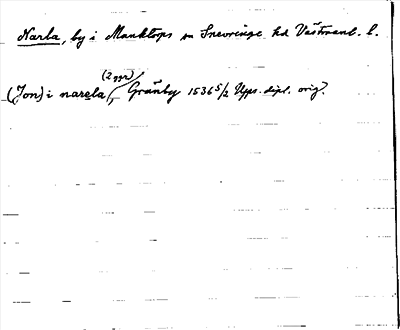 Narla, by i Munktorps sn Snevringe hd Västmanl. l.
(2 ggr)
(Jon) i narela, Gränby 1536 5/2 Upps. dipl. orig.